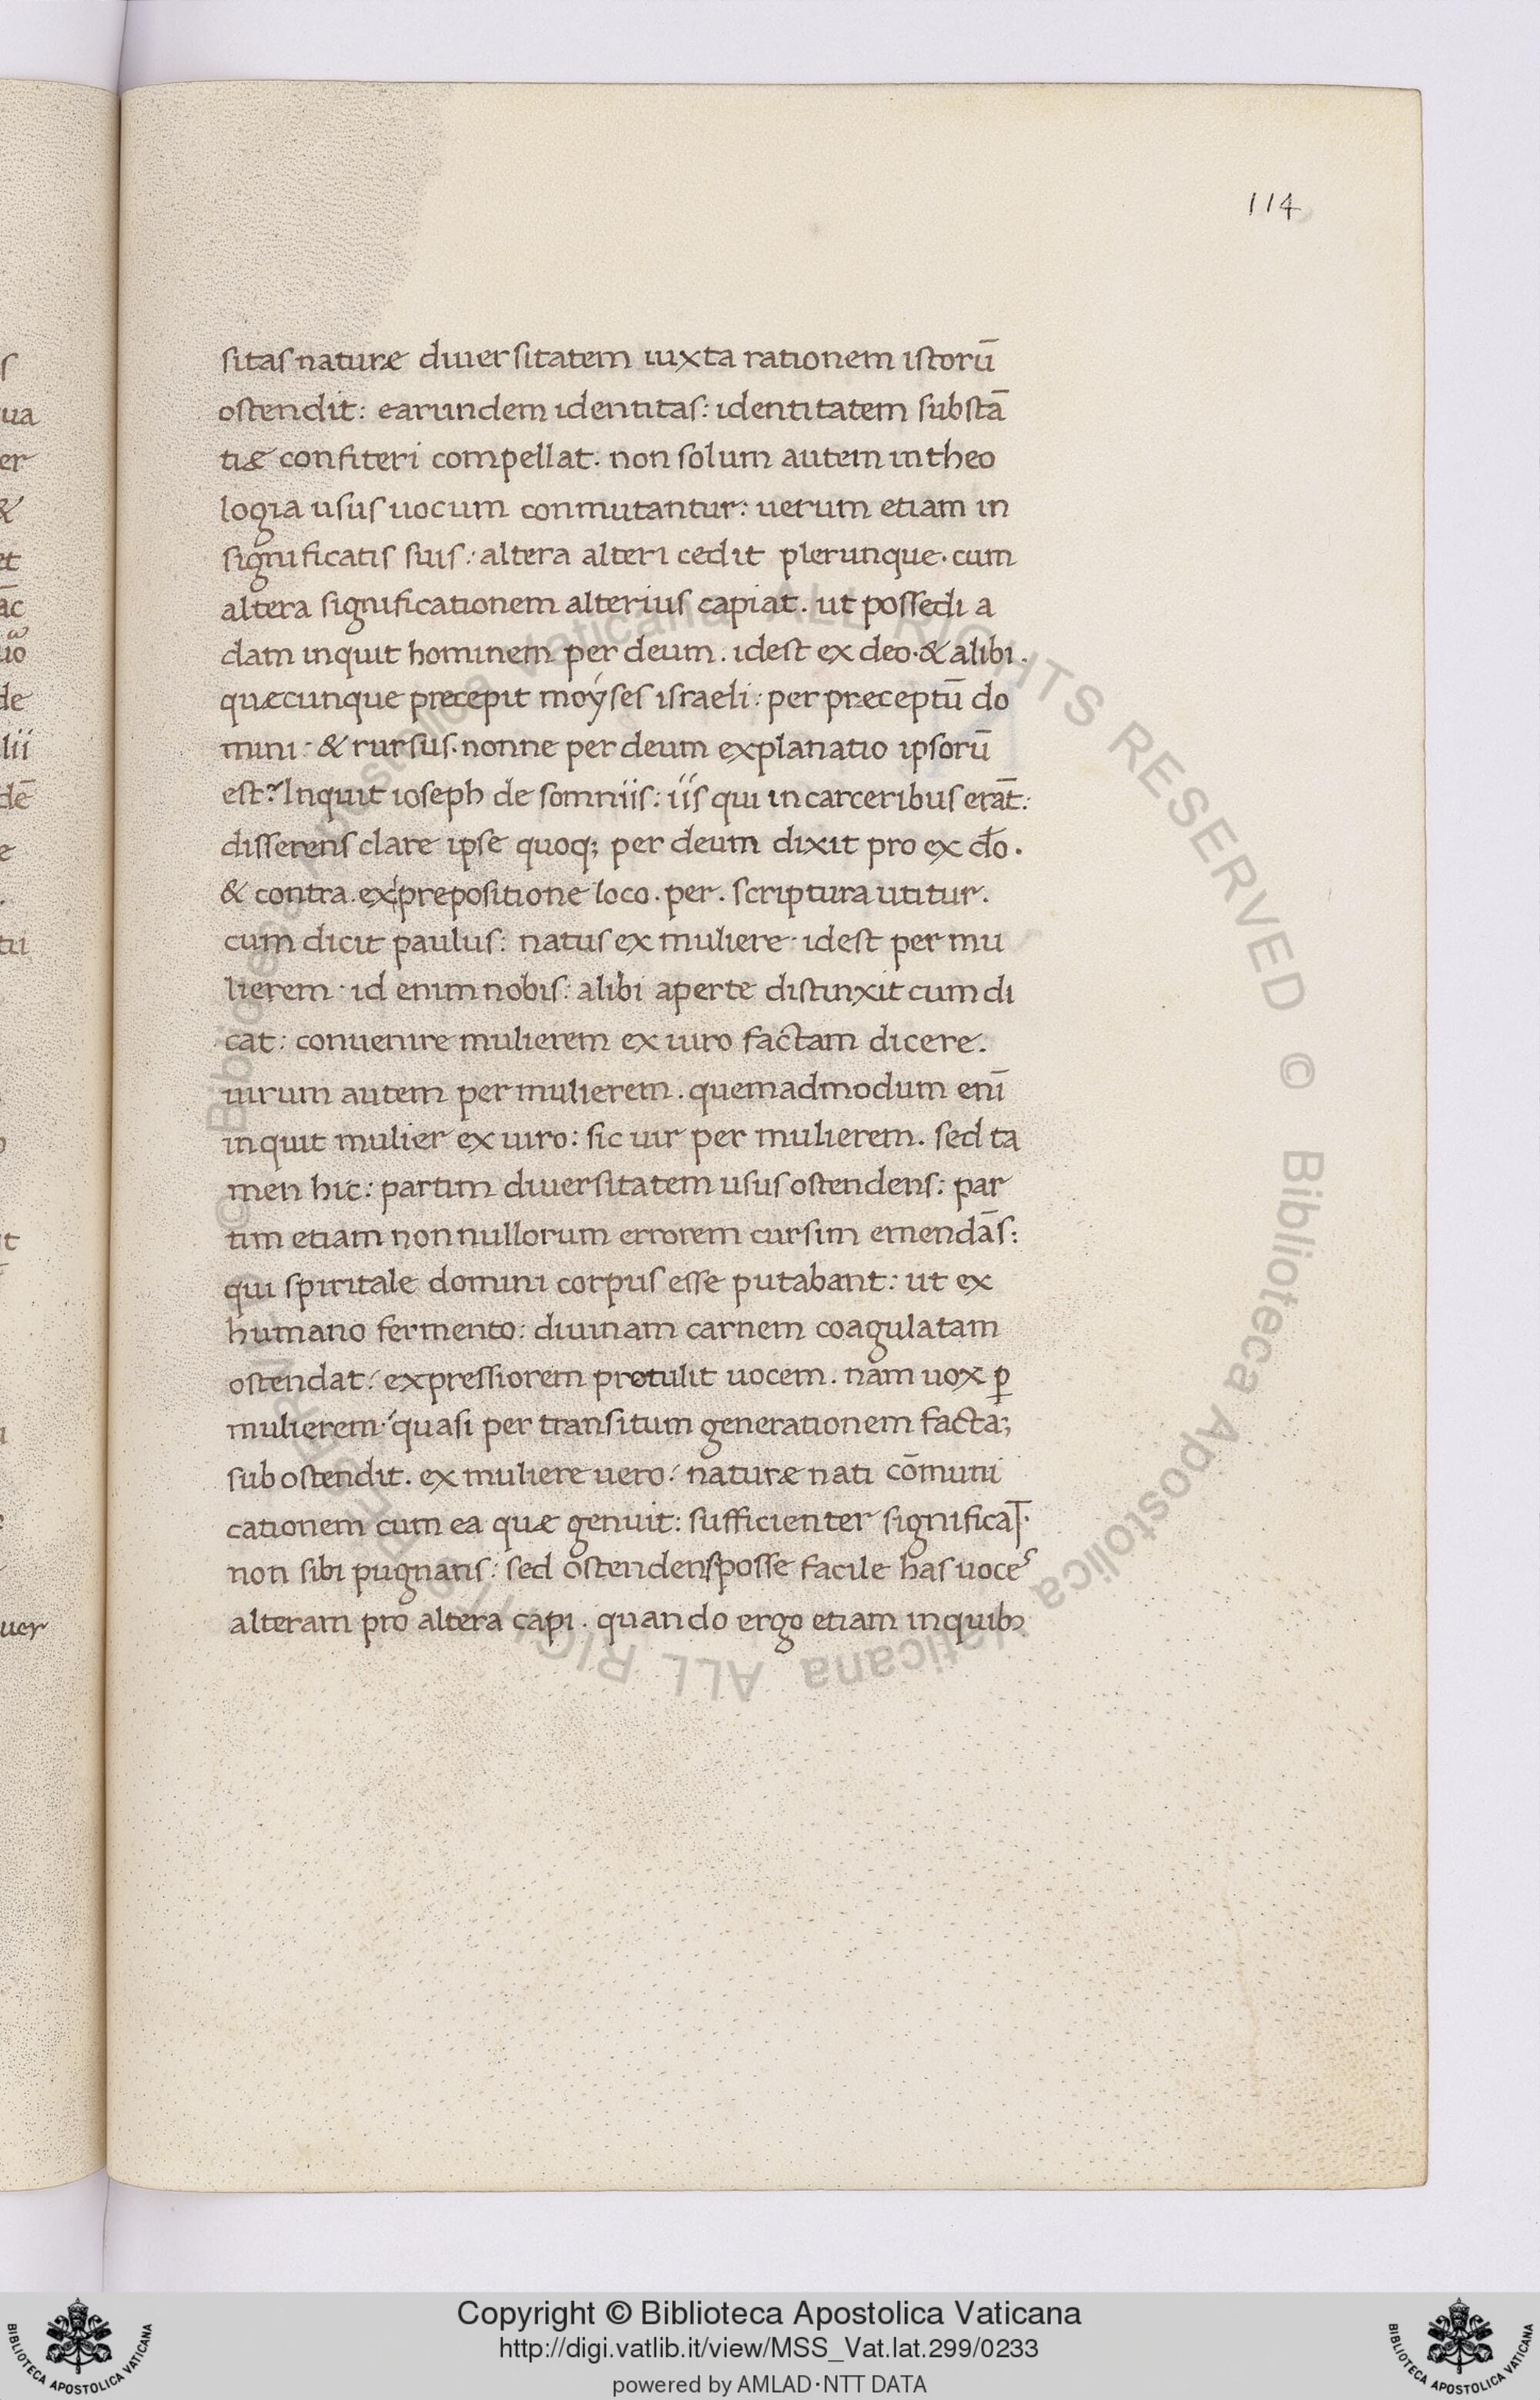 114
sitas naturæ diuersitatem iuxta rationem istorū
ostendit: earundem identitas: identitatem substā
tiæ confiteri compellat. non solum autem in theo
logia usus uocum conmutantur: uerum etiam in
significatis suis: altera alteri cedit plerunque. cum
altera significationem alterius capiat. ut possedi a
dam inquit hominem per deum. idest ex deo. & alibi.
quæcunque precepit moýses israeli: per præceptū do
mini. & rursus. nonne per deum explanatio ipsorū
est? Inquit ioseph de somniis: iis qui in carceribus erāt:
disserens clare ipse quoq; per deum dixit pro ex do̅.
& contra. ex prepositione loco. per. scriptura utitur.
cum dicit paulus: natus ex muliere. idest per mu
lierem. id enim nobis: alibi aperte distinxit cum di
cat: conuenire mulierem ex uiro factam dicere.
uirum autem per mulierem. quemadmodum eni̅
inquit mulier ex uiro: sic uir per mulierem. sed ta
men hic: partim diuersitatem usus ostendens: par
tim etiam non nullorum errorem cursim emendās:
qui spiritale domini corpus esse putabant: ut ex
humano fermento: diuinam carnem coagulatam
ostendat: expressiorem protulit uocem. nam uox ꝑ
mulierem: quasi per transitum generationem factā;
sub ostendit. ex muliere uero: naturæ nati cōmuni
cationem cum ea quæ genuit: sufficienter significat̅.
non sibi pugnans: sed ostendens posse facile has uoces
alteram pro altera capi. quando ergo etiam in quibꝰ
s
ua
er
&
et
āc
uo
de
lii
dē
e
tii
it
uer
© Biblioteca Apostolica Vaticana ALL RIGHTS RESERVED © Biblioteca Apostolica Vaticana ALL RIGHTS RESERVED
Copyright © Biblioteca Apostolica Vaticana
http://digi.vatlib.it/view/MSS_Vat.lat.299/0233
powered by AMLAD·NTT DATA
BIBLIOTECA APOSTOLICA VATICANA
BIBLIOTECA APOSTOLICA VATICANA